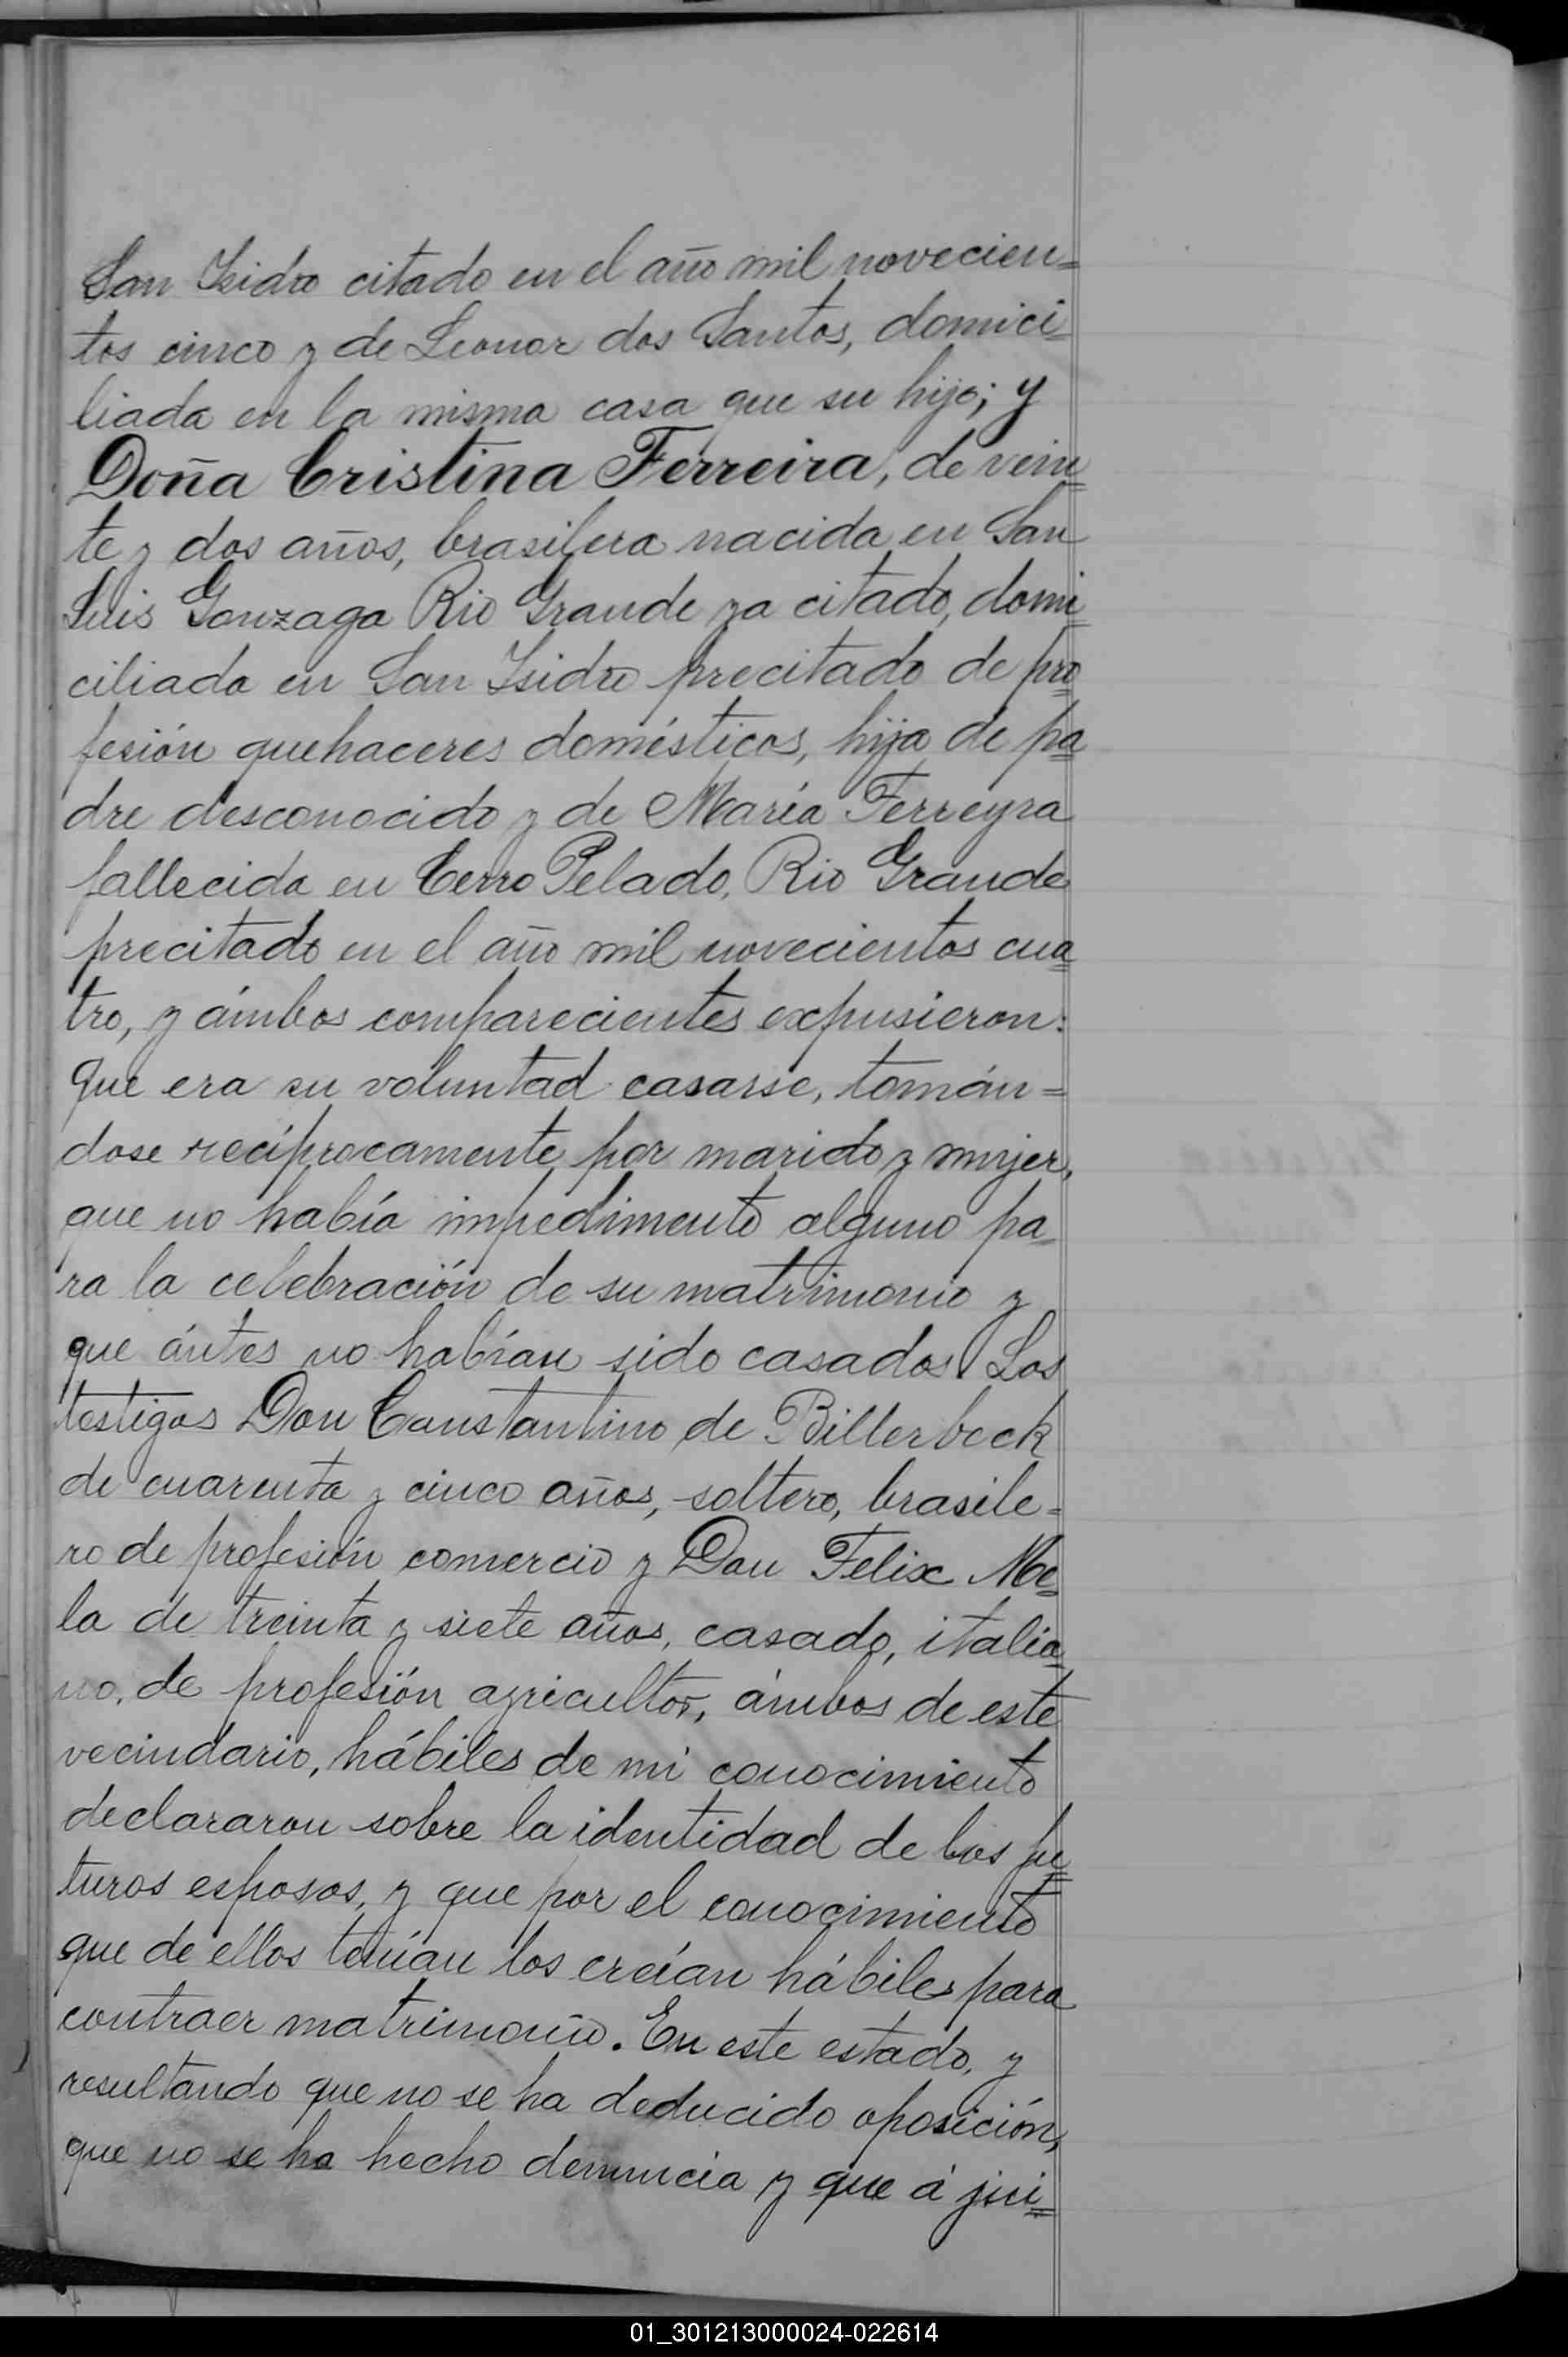 San Isidro citado en el año mil novecien=
tos cinco y de Leonor dos Santos, domici=
liada en la misma casa que su hijo; y
Doña Cristina Ferreira, de vein=
te y dos años, brasilera nacida en San
Luis Gonzaga Rio Grande ya citado, domi=
ciliada en San Isidro precitado de pro=
fesión quehaceres domésticos, hija de pa=
dre desconocido y de María Ferreyra
fallecida en Cerro Pelado, Rio Grande
precitado en el año mil novecientos cua=
tro, y ámbos comparecientes expusieron:
que era su voluntad casarse, tomán=
dose recíprocamente por marido y mujer,
que no había impedimento alguno pa=
ra la celebración de su matrimonio y
que ántes no habían sido casados. Los
testigos Don Constantino de Billerbeck
de cuarenta y cinco años, soltero, brasile=
ro de profesión comercio y Don Felix Me=
la de treinta y siete años, casado, italia=
no, de profesión agricultor, ámbos de este
vecindario, hábiles de mi conocimiento
declararon sobre la identidad de los fu=
turos esposos, y que por el conocimiento
que de ellos tenían los creían hábiles para
contraer matrimonio. En este estado, y
resultando que no se ha deducido oposición,
que no se ha hecho denuncia y que á jui=
01_301213000024-022614